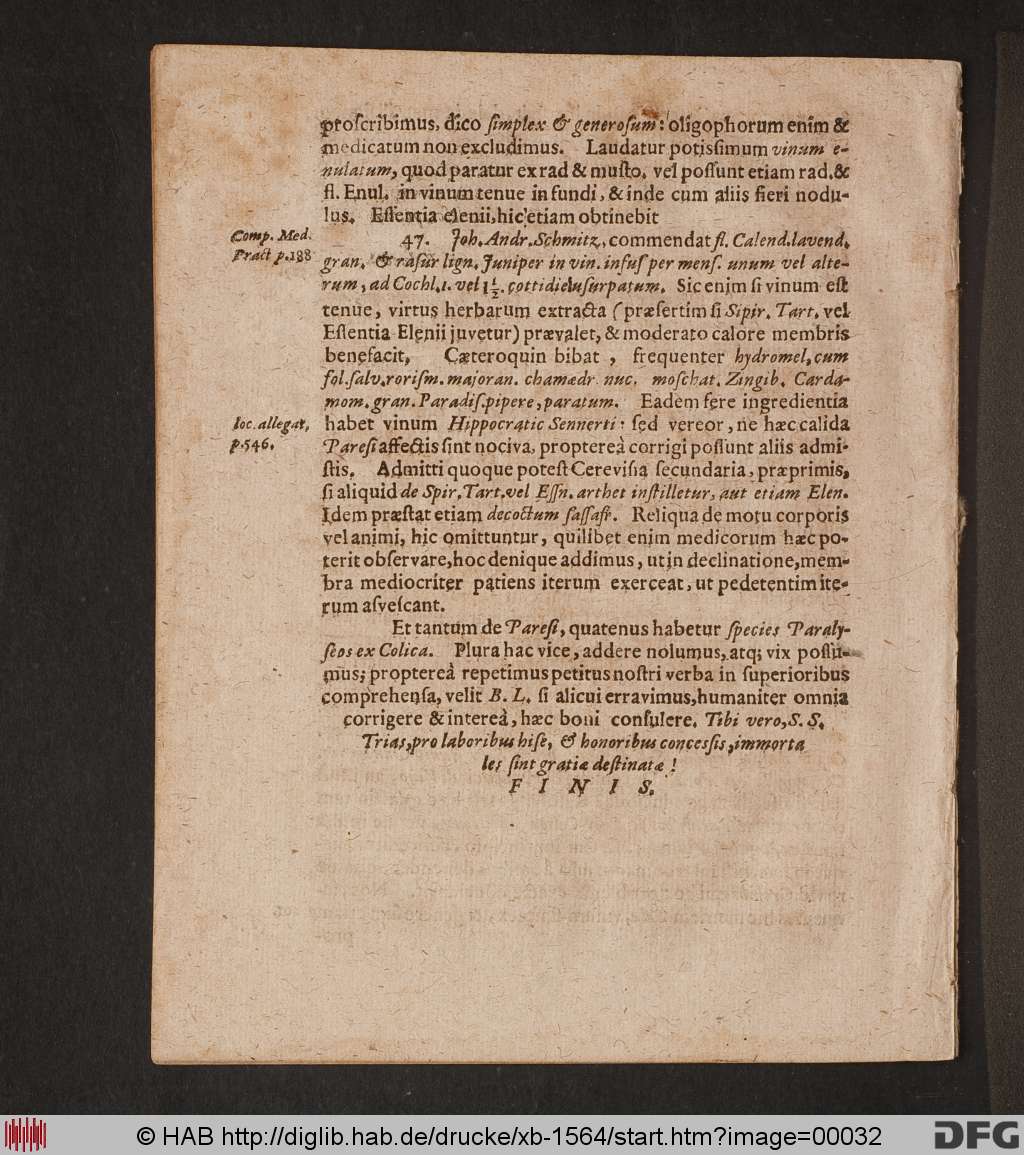 proſcribimus, dico ſimplex & generoſum: oligophorum enim &
medicatum non excludimus. Laudatur potisſimum vinum e-
nulatum, quod paratur ex rad & muſto, vel poſſunt etiam rad. &
fl. Enul. in vinum tenue in fundi, & inde cum aliis fieri nodu-
lus. Eſſentia elenii, hic etiam obtinebit
Comp. Med.
Pract p. 188
47. Joh. Andr. Schmitz, commendat fl. Calend. lavend.
gran. & raſur lign. Juniper in vin. infuſ per menſ. unum vel alte-
rum, ad Cochl. 1. vel 1½. cottidie uſurpatum. Sic enim ſi vinum eſt
tenue, virtus herbarum extracta (præſertim ſi Sipir. Tart. vel
Eſſentia Elenii juvetur) prævalet, & moderato calore membris
benefacit. Cæteroquin bibat, frequenter hydromel, cum
fol. ſalv. roriſm. majoran. chamædr. nuc. moſchat. Zingib. Carda-
mom. gran. Paradiſ. pipere, paratum. Eadem fere ingredientia
loc. allegat,
p. 546.
habet vinum Hippocratic Sennerti: ſed vereor, ne hæc calida
Pareſi affectis ſint nociva, propterea̍ corrigi poſſunt aliis admi-
ſtis. Admitti quoque poteſt Cereviſia ſecundaria, præprimis,
ſi aliquid de Spir. Tart. vel Eſſn. arthet inſtilletur, aut etiam Elen.
Idem præſtat etiam decoctum ſaſſafr. Reliqua de motu corporis
vel animi, hic omittuntur, quilibet enim medicorum hæc po-
terit obſervare, hoc denique addimus, ut in declinatione, mem-
bra mediocriter patiens iterum exerceat, ut pedetentim ite-
rum aſveſcant.
Et tantum de Pareſi, quatenus habetur ſpecies Paraly-
ſeos ex Colica. Plura hac vice, addere nolumus, atq; vix poſſu-
mus; propterea̍ repetimus petitus noſtri verba in ſuperioribus
comprehenſa, velit B. L. ſi alicui erravimus, humaniter omnia
corrigere & interea̍, hæc boni conſulere. Tibi vero, S. S.
Trias, pro laboribus hiſe, & honoribus conceſſis, immorta
les ſint gratiæ deſtinatæ!
F I N I S.
© HAB http://diglib.hab.de/drucke/xb-1564/start.htm?image=00032
DFG